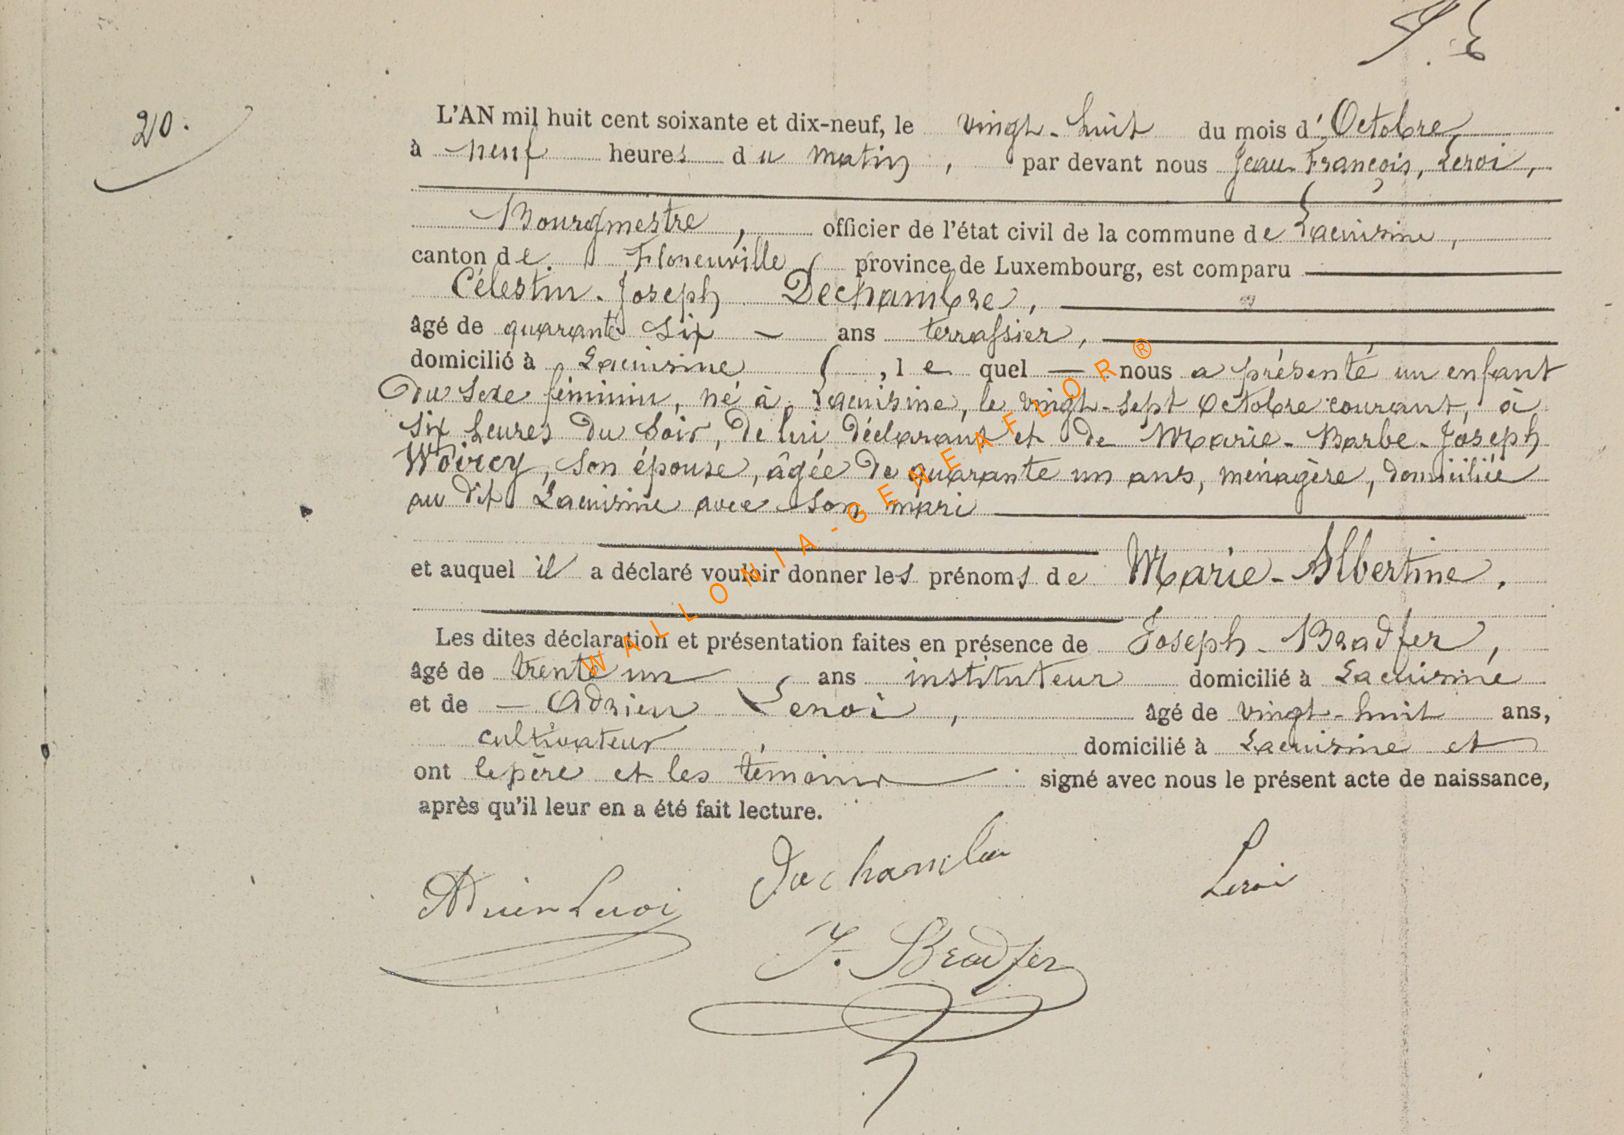 20.
L'AN mil huit cent soixante et dix-neuf, le vingt-huit du mois d'Octobre,
à neuf heures du matin, par devant nous Jean-François, Leroi,
Bourgmestre, officier de l'état civil de la commune de Lacuisine,
canton de Florenville province de Luxembourg, est comparu
Célestin-Joseph Dechambre,
âgé de quarante six ans terrassier,
domicilié à Lacuisine, le quel nous a présenté un enfant
du sexe féminin, né à Lacuisine, le vingt-sept Octobre courant, à
six heures du soir, de lui déclarant et de Marie-Barbe-Joseph
Woircy, son épouse, âgée de quarante un ans, ménagère, domiciliée
au dit Lacuisine avec son mari
et auquel il a déclaré vouloir donner les prénoms de Marie-Albertine.
Les dites déclaration et présentation faites en présence de Joseph-Bradfer,
âgé de trente un ans instituteur domicilié à Lacuisine
et de Adrien Leroi, âgé de vingt-huit ans,
cultivateur, domicilié à Lacuisine et
ont le père et les témoins signé avec nous le présent acte de naissance,
après qu'il leur en a été fait lecture.
Dechambre
Adrien Leroi
Leroi
J. Bradfer
WALLONIA-GENEAFLOR®